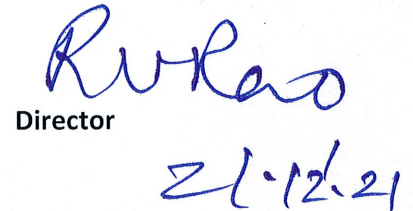 RVRao
Director
21.12.21